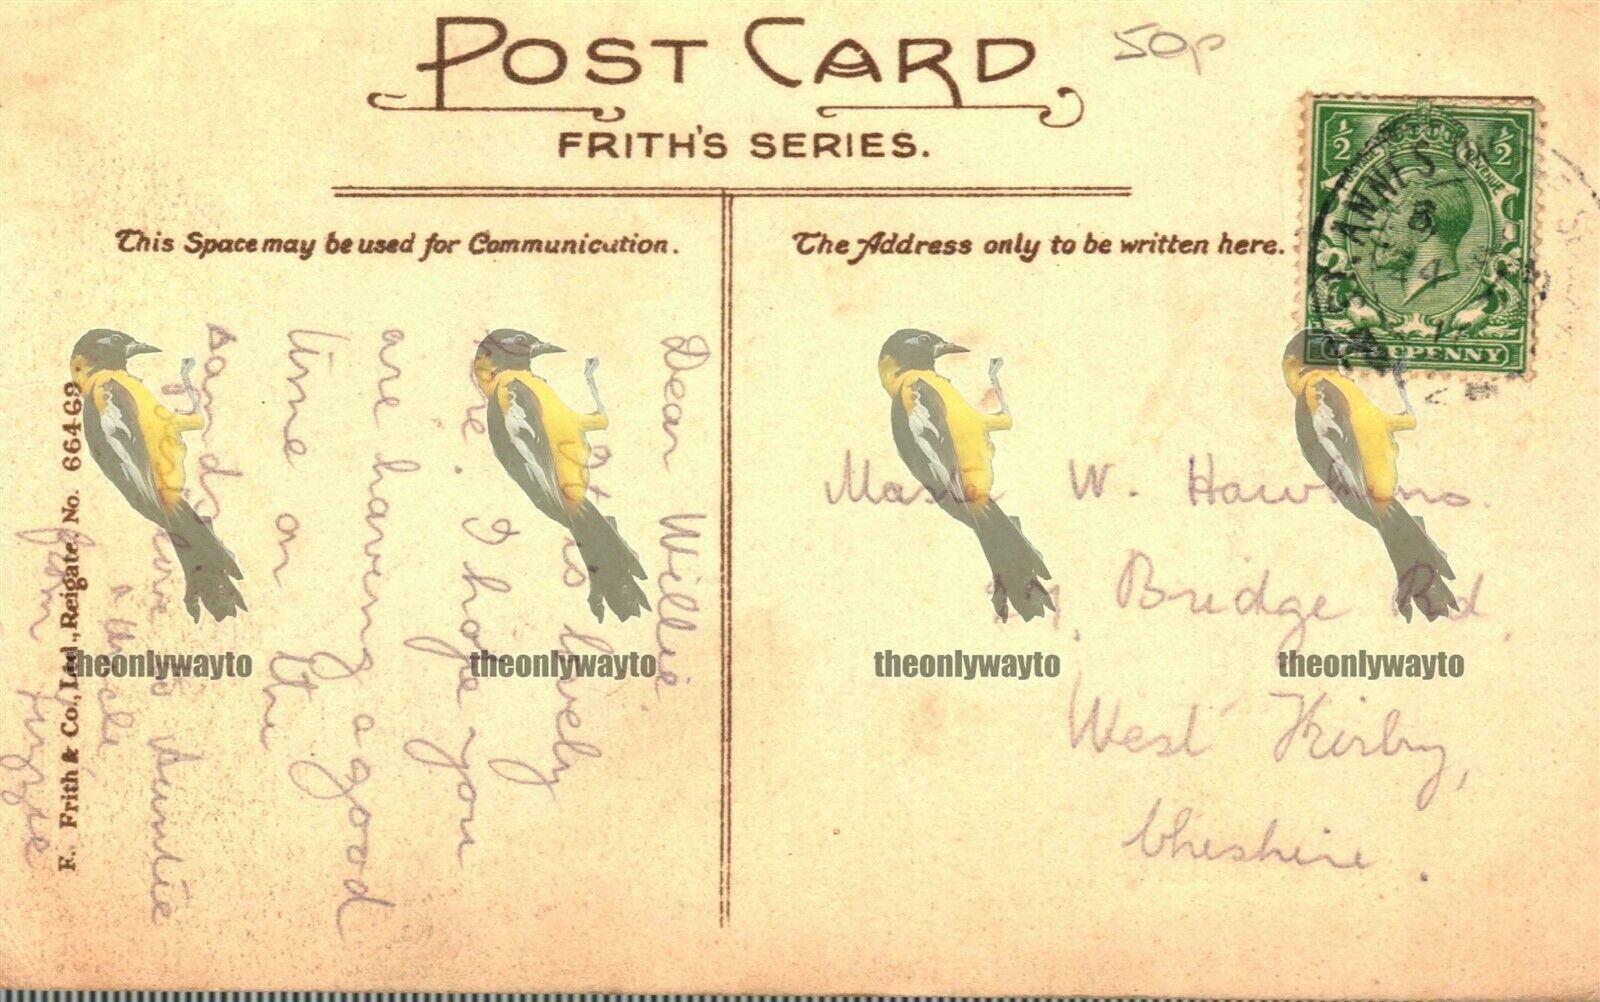 POST CARD
50p
FRITH'S SERIES.
This Space may be used for Communication.
The Address only to be written here.
Dear Willie
It is lovely
here. I hope you
are having a good
time on the
sands.
Best love to Auntie
& Uncle
from Lizzie
F. Frith & Co., Ltd., Reigate. No. 66469
ST. ANNES
½
½
HALFPENNY
Master W. Hawkins.
Bridge Rd,
West Kirby,
Cheshire.
theonlywayto
theonlywayto
theonlywayto
theonlywayto